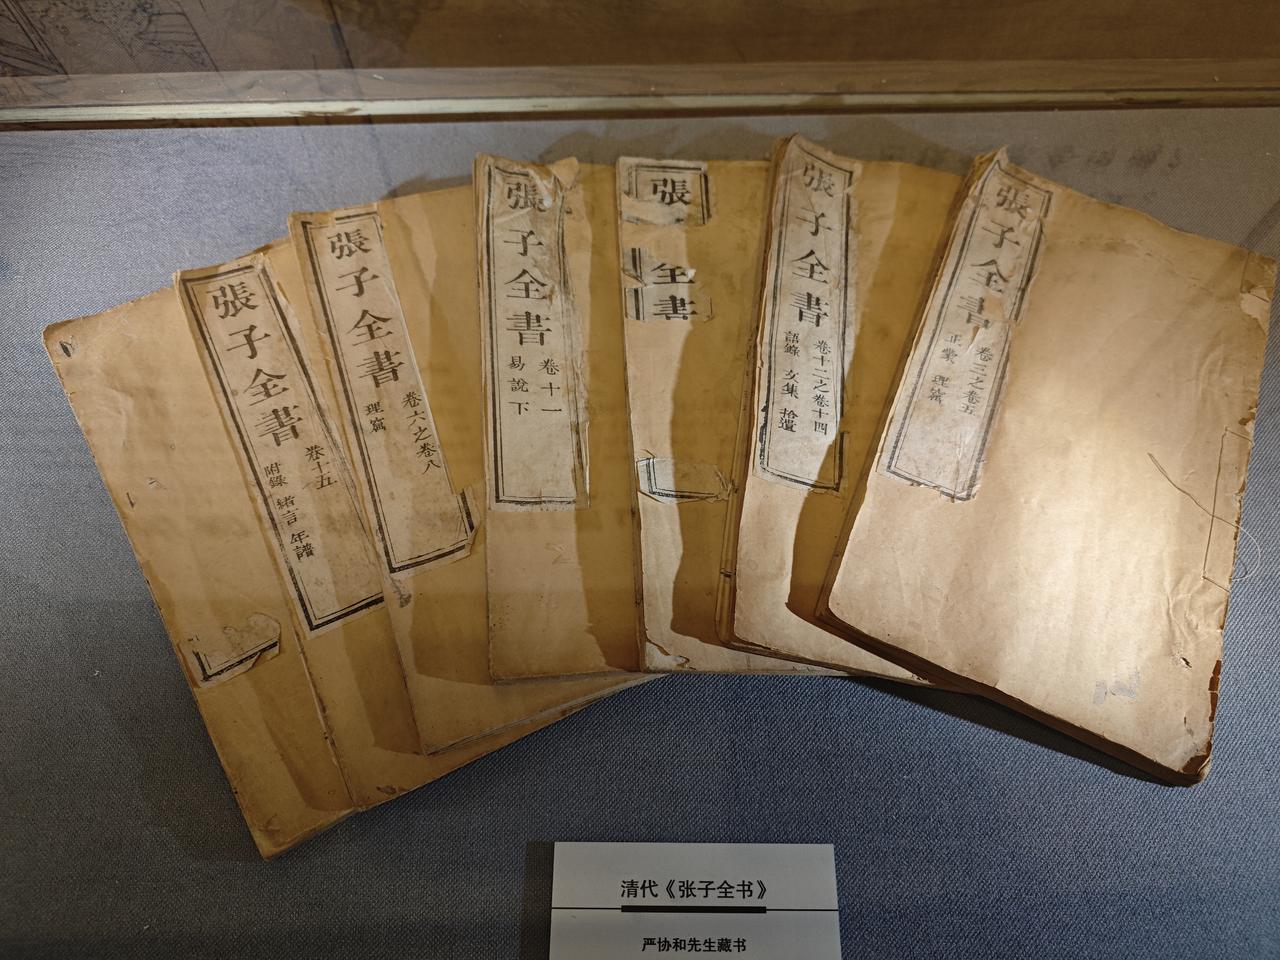 張子全書
卷十五
附錄 緒言 年譜
張子全書
卷六之卷八
理窟
張子全書
卷十一
易說下
張
全書
張子全書
卷十二之卷十四
語錄 文集 拾遺
張子全書
卷三之卷五
正蒙 理窟
清代《张子全书》
严协和先生藏书